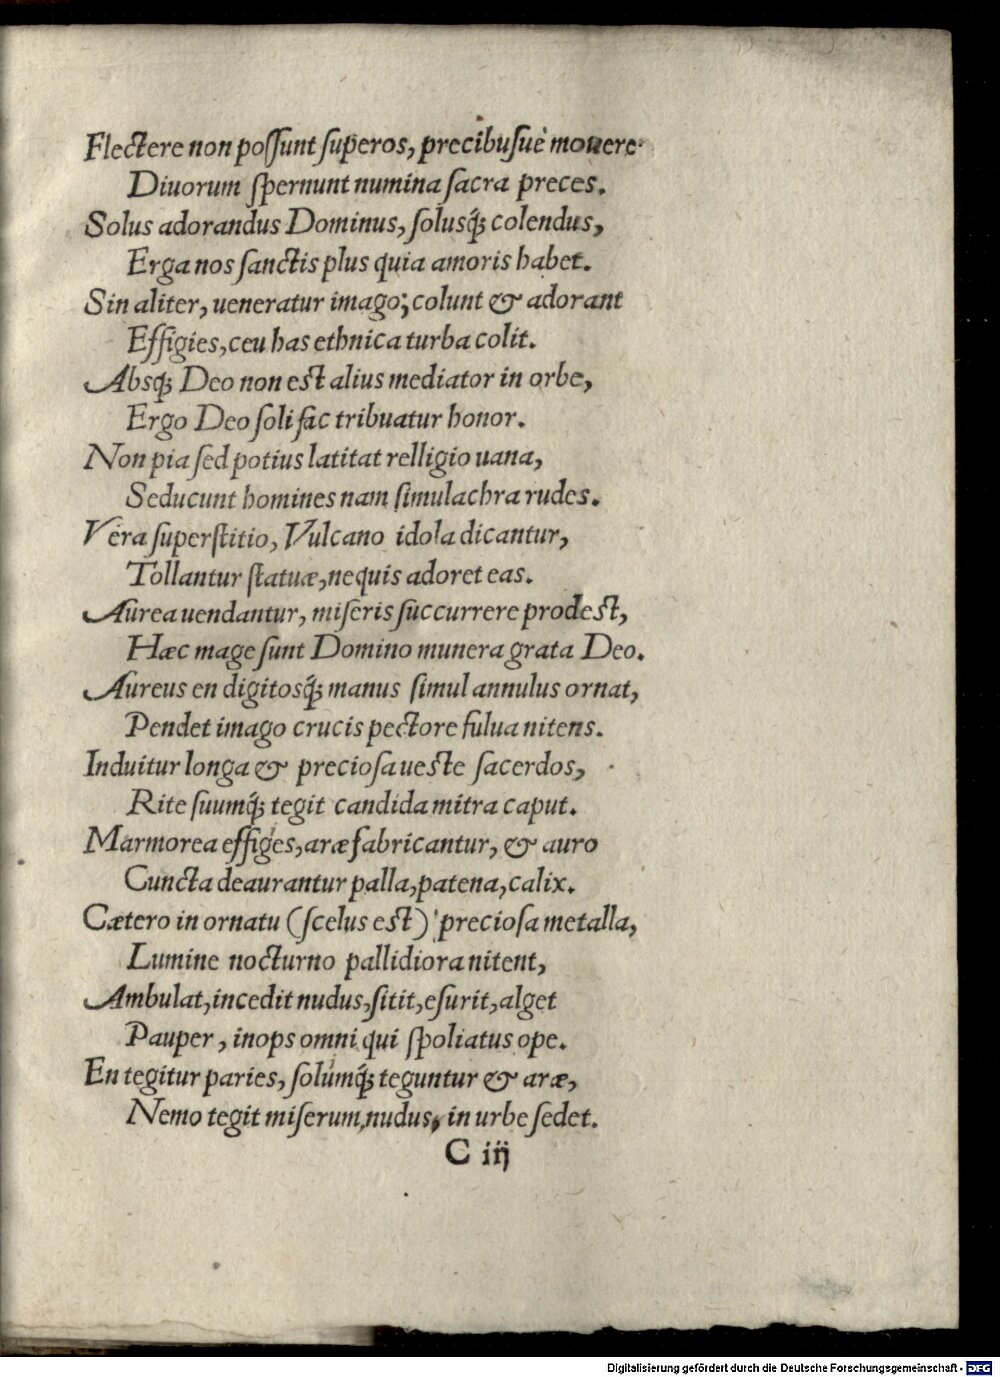 Flectere non poſſunt ſuperos, precibuſuè mouere·
Diuorum ſpernunt numina ſacra preces.
Solus adorandus Dominus, ſolusq́; colendus,
Erga nos ſanctis plus quia amoris habet.
Sin aliter, ueneratur imago; colunt & adorant
Effigies, ceu has ethnica turba colit.
Absq; Deo non est alius mediator in orbe,
Ergo Deo ſoli fac tribuatur honor.
Non pia ſed potius latitat relligio uana,
Seducunt homines nam ſimulachra rudes.
Vera ſuperſtitio, Vulcano idola dicantur,
Tollantur ſtatuæ, ne quis adoret eas.
Aurea uendantur, miſeris ſuccurrere prodest,
Hæc mage ſunt Domino munera grata Deo.
Aureus en digitosq́; manus ſimul annulus ornat,
Pendet imago crucis pectore fulua nitens.
Induitur longa & precioſa ueste ſacerdos,
Rite ſuumq́; tegit candida mitra caput.
Marmorea effiges, aræ fabricantur, & auro
Cuncta deaurantur palla, patena, calix.
Cætero in ornatu (ſcelus est) precioſa metalla,
Lumine nocturno pallidiora nitent,
Ambulat, incedit nudus, ſitit, eſurit, alget
Pauper, inops omni qui ſpoliatus ope.
En tegitur paries, ſolumq́; teguntur & aræ,
Nemo tegit miſerum, nudus, in urbe ſedet.
C iij
Digitalisierung gefördert durch die Deutsche Forschungsgemeinschaft - DFG